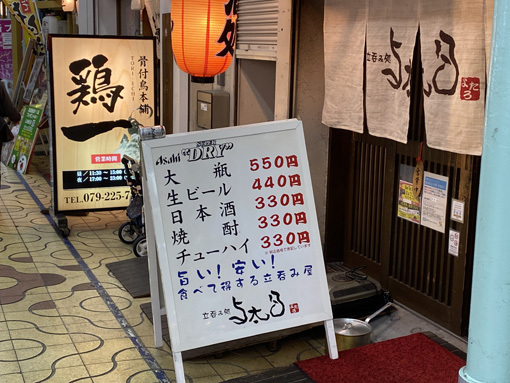 骨付鳥本舗
TORI-ICHI
鶏一
営業時間
TEL.079-225-7
立呑み処
よたろ
Asahi SUPER "DRY"
大瓶 550円
生ビール 440円
日本酒 330円
焼酎 330円
チューハイ 330円
旨い!安い!
食べて得する立呑み屋
立呑み処 与太呂